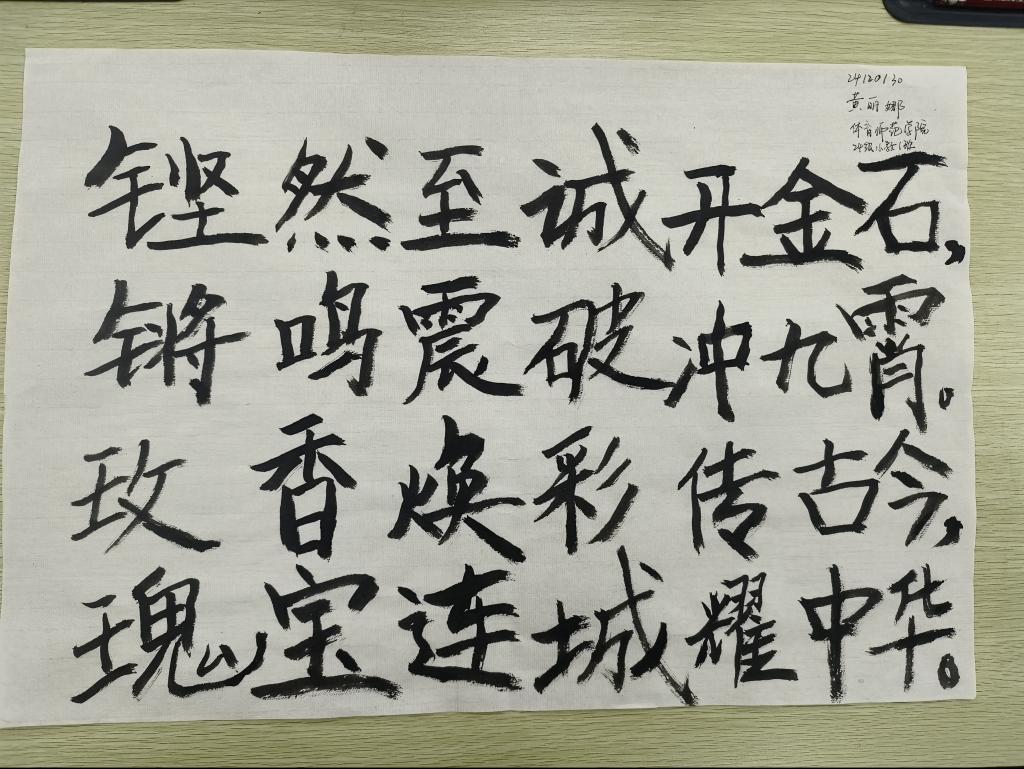 24120130
黄丽娜
体育师范学院
24级小教1班
铿然至诚开金石，
锵鸣震破冲九霄。
玫香焕彩传古今，
瑰宝连城耀中华。